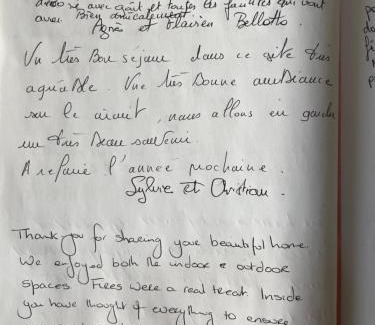 avec goût et toutes les facilités qui vont
avec Bien amicalement.
Agnès et Flavien Bellotto.
Un très Bon séjour dans ce gîte très
agréable. Une très bonne ambiance
sur le circuit, nous allons en garder
un très beau souvenir.
A refaire l'année prochaine.
Sylvie et Christian.
Thank you for sharing your beautiful home.
We enjoyed both the indoor & outdoor
spaces. Trees were a real treat. Inside
you have thought of everything to ensure